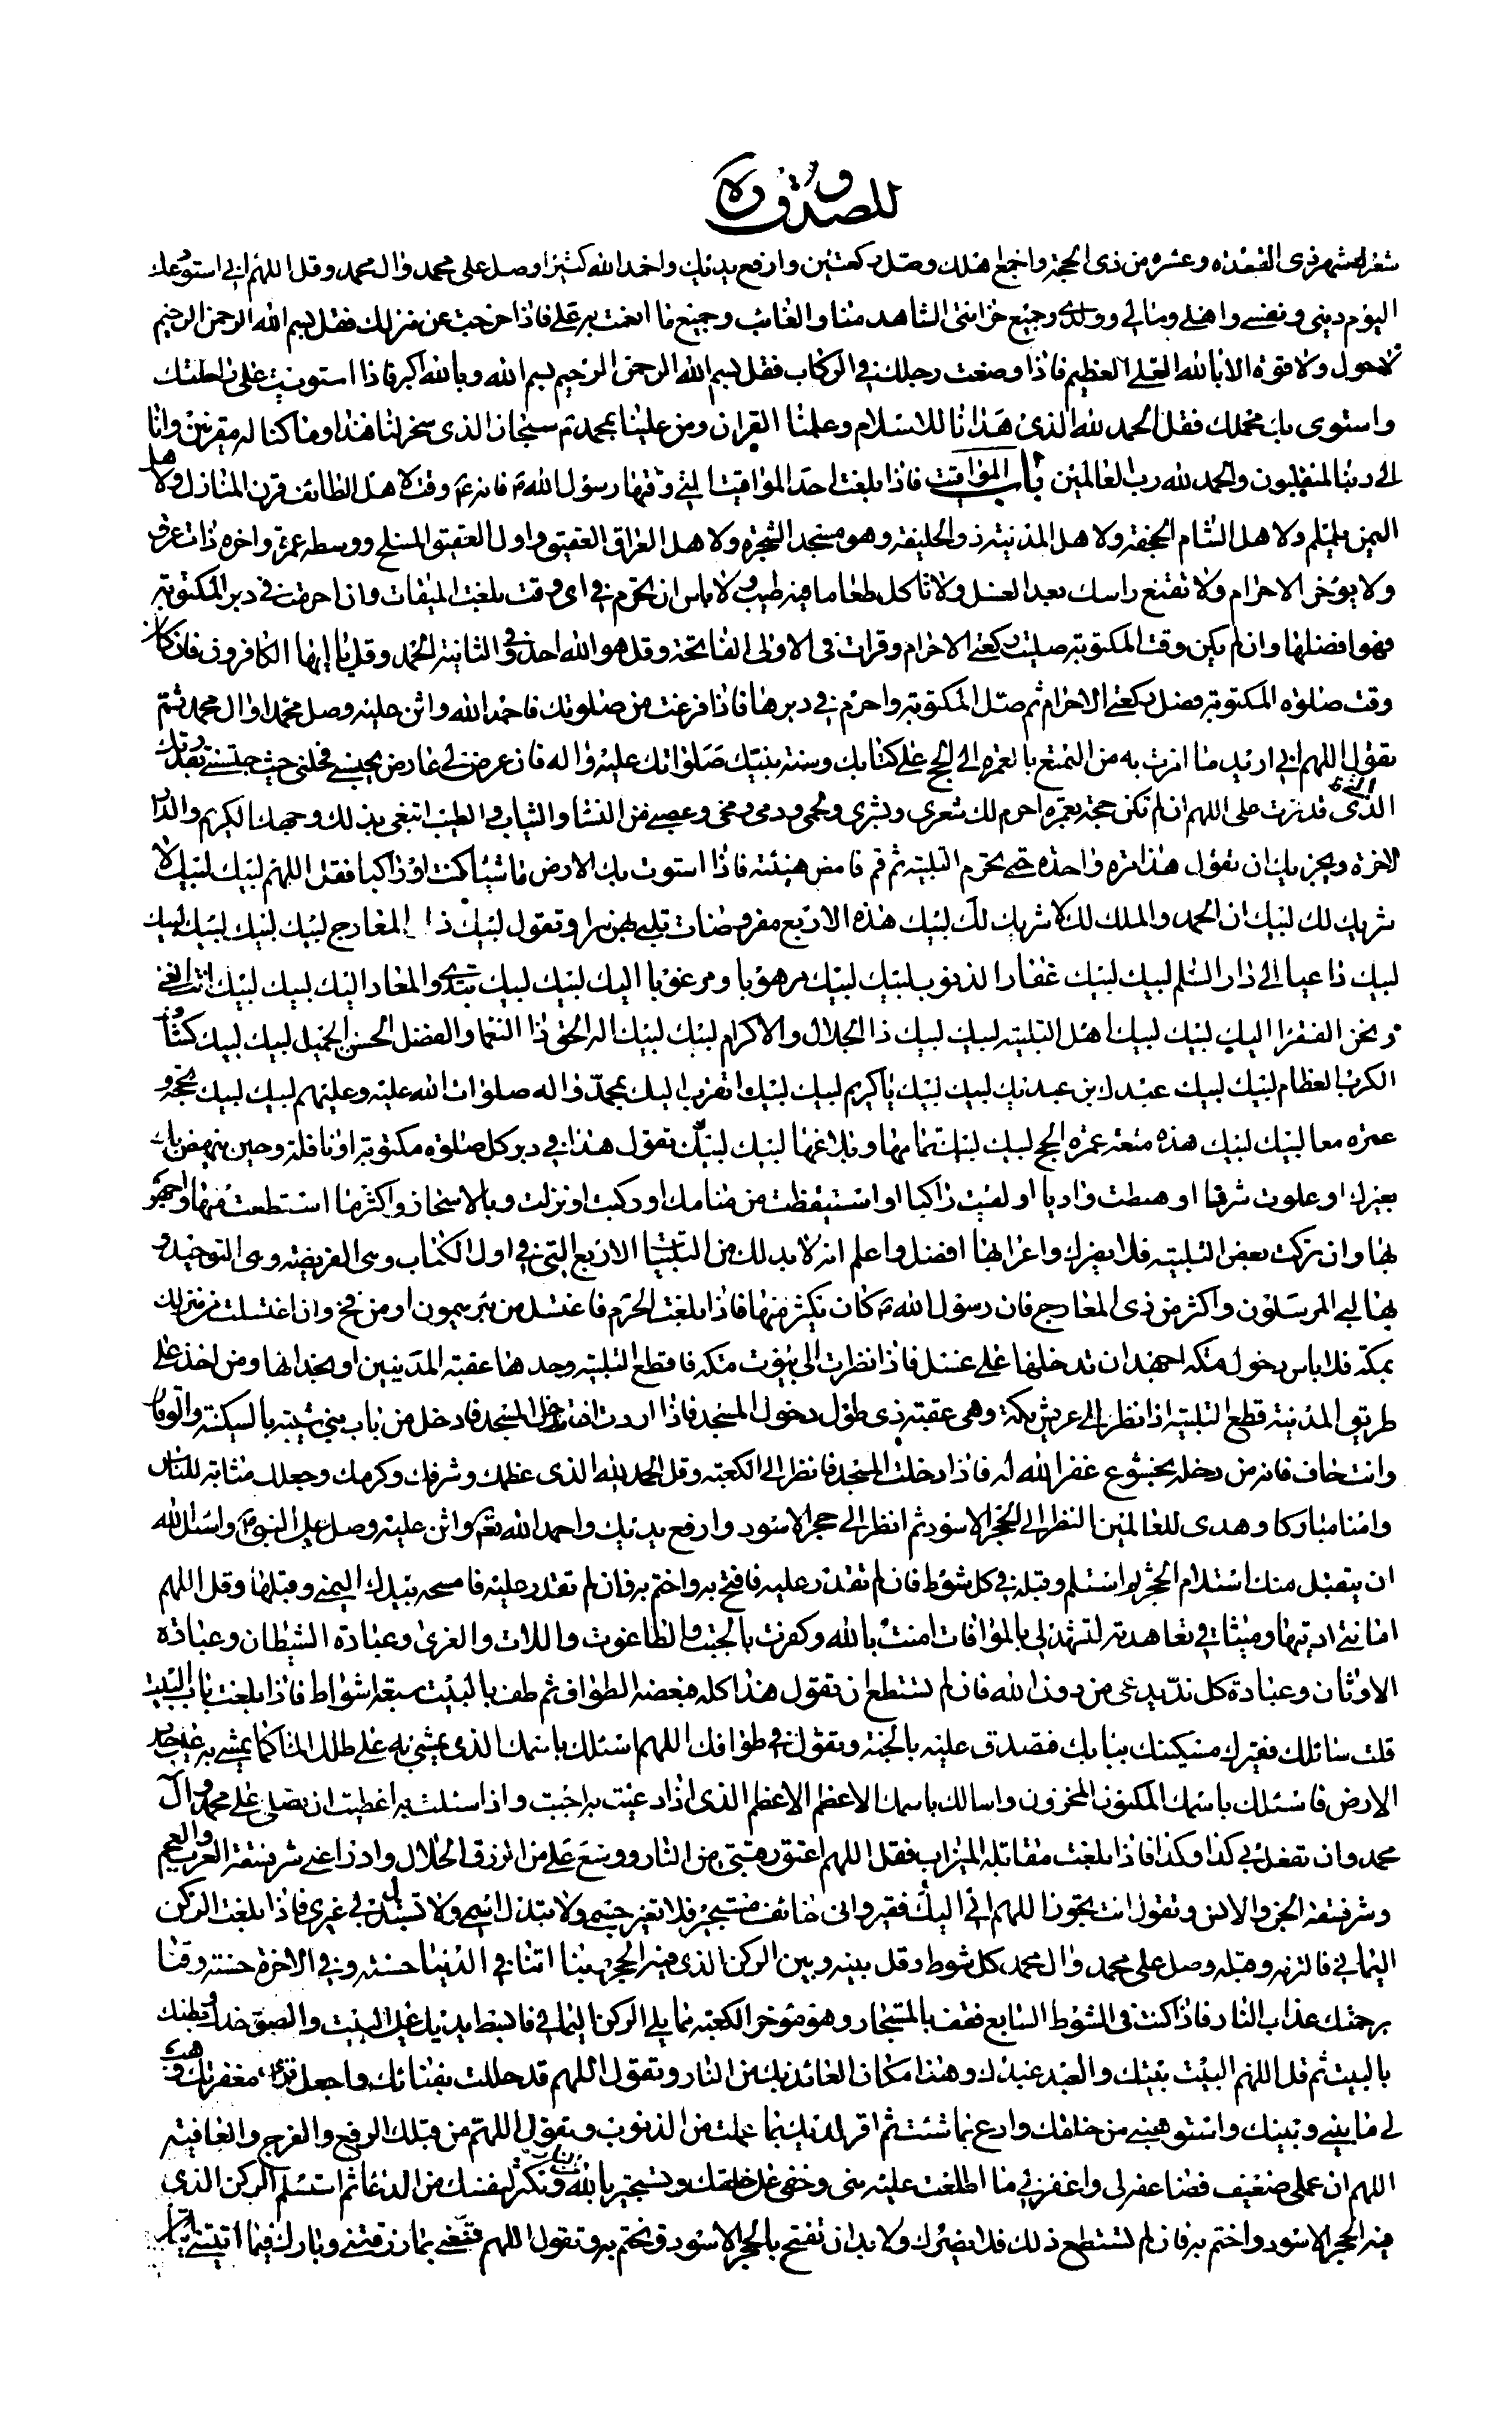 للصدوق ره
شعرك شهر ذى القعده وعشره من ذى الحجة واجمع اهلك وصل ركعتين وارفع يديك واحمد الله كثيرا وصل على محمد وال محمد وقل اللهم انى استودعك
اليوم دينى ونفسى واهلى ومالى وولدى وجميع حزانتى الشاهد منا والغائب وجميع ما انعمت به على فاذا خرجت عن منزلك فقل بسم الله الرحمن الرحيم
لا حول ولا قوة الا بالله العلى العظيم فاذا وضعت رجلك فى الركاب فقل بسم الله الرحمن الرحيم بسم الله وبالله اكبر فاذا استويت على راحلتك
واستوى بك محملك فقل الحمد لله الذى هدانا للاسلام وعلمنا القران ومن علينا بمحمد ص سبحان الذى سخر لنا هذا وما كنا له مقرنين وانا
الى ربنا لمنقلبون والحمد لله رب العالمين باب المواقيت فاذا بلغت احد المواقيت التى وقتها رسول الله ص فانه ع وقت لاهل الطائف قرن المنازل ولاهل
اليمن يلملم ولاهل الشام الجحفة ولاهل المدينة ذو الحليفة وهو مسجد الشجرة ولاهل العراق العقيق واول العقيق المسلخ ووسطه غمرة واخره ذات عرق
ولا يؤخر الاحرام ولا تقنع راسك بعد الغسل ولا تاكل طعاما فيه طيب ولا باس ان تحرم فى اى وقت بلغت الميقات وان احرمت فى دبر المكتوبة
فهو افضلها وان لم يكن وقت المكتوبة صليت ركعتى الاحرام وقرات فى الاولى الفاتحة وقل هو الله احد وفى الثانية الحمد وقل يا ايها الكافرون فان كان
وقت صلوة المكتوبة فصل ركعتى الاحرام ثم صل المكتوبة واحرم فى دبرها فاذا فرغت من صلوتك فاحمد الله واثن عليه وصل محمدا وال محمد ثم
تقول اللهم انى اريد ما امرت به من التمتع بالعمرة الى الحج على كتابك وسنة نبيك صلواتك عليه واله فان عرض لى عارض يحبسنى فحلنى حيث حبستنى بقدرتك
الذى قدرت على اللهم ان لم تكن حجة بعمرة احرم لك شعرى وبشرى ولحمى ودمى ومخى وعصبى من النساء والثياب والطيب ابتغى بذلك وجهك الكريم والدار
الاخرة ويجزيك ان تقول هذا مرة واحدة حتى تحرم التلبية ثم قم فامض هيئته فاذا استوت بك الارض ماشيا كنت او راكبا فقل اللهم لبيك لبيك لا
شريك لك لبيك ان الحمد والملك لك لا شريك لك لبيك هذه الاربع مفروضات تلبى بهن سرا وتقول لبيك ذا المعارج لبيك لبيك لبيك لبيك
لبيك داعيا الى دار السلم لبيك لبيك غفار الذنوب لبيك لبيك مرهوبا ومرغوبا اليك لبيك لبيك تبتدئ والمعاد اليك لبيك لبيك انت الغنى
ونحن الفقرا اليك لبيك لبيك اهل التلبية لبيك لبيك ذا الجلال والاكرام لبيك لبيك اله الحق ذا النعماء والفضل الحسن الجميل لبيك لبيك كشاف
الكرب العظام لبيك لبيك عبدك بن عبديك لبيك لبيك يا كريم لبيك لبيك اتقرب اليك بمحمد واله صلوات الله عليه وعليهم لبيك لبيك بحجة و
عمرة معا لبيك لبيك هذه متعة عمرة الحج لبيك لبيك تمامها وبلاغها لبيك لبيك تقول هذا فى دبر كل صلوة مكتوبة او نافلة وحين ينهض بك
بعيرك او علوت شرفا او هبطت واديا او لقيت راكبا او استيقظت من منامك او ركبت او نزلت وبالاسحار واكثر ما استطعت منها واجهر
بها وان تركت بعض التلبية فلا يضرك واعرابها افضل واعلم انه لا بد لك من التلبيات الاربع التى فى اول الكتاب وهى الفريضة وهى التوحيد و
بها لبى المرسلون واكثر من ذى المعارج فان رسول الله ص كان يكثر منها فاذا بلغت الحرم فاغتسل من بئر ميمون او من فخ وان اغتسلت من منزلك
بمكة فلا باس دخول مكة اجهد ان تدخلها على غسل فاذا نظرت الى بيوت مكة فاقطع التلبية وحدها عقبة المدنيين او بحذائها ومن اخذ على
طريق المدينة قطع التلبية اذا نظر الى عريش مكة وهى عقبة ذى طوى دخول المسجد فاذا اردت ان تدخل المسجد فادخل من باب بنى شيبة بالسكينة والوقار
وانت حاف فانه من دخله بخشوع غفر الله له فاذا دخلت المسجد فانظر الى الكعبة وقل الحمد لله الذى عظمك وشرفك وكرمك وجعلك مثابة للناس
وامنا مباركا وهدى للعالمين النظر الى الحجر الاسود ثم انظر الى حجر الاسود وارفع يديك واحمد الله تعم واثن عليه وصل على النبى ص واسئل الله
ان يتقبل منك استلام الحجر ثم استلم وقبله فى كل شوط فان لم تقدر عليه فافتح به واختم به فان لم تقدر عليه فامسحه بيدك اليمنى وقبلها وقل اللهم
امانتى اديتها وميثاقى تعاهدته لتشهد لى بالموافات امنت بالله وكفرت بالجبت والطاغوت واللات والعزى وعبادة الشيطان وعبادة
الاوثان وعبادة كل ند يدعى من دون الله فان لم تستطع ان تقول هذا كله فبعضه الطواف ثم طف بالبيت سبعة اشواط فاذا بلغت باب البيت
قلت سائلك فقيرك مسكينك ببابك فتصدق عليه بالجنة وتقول فى طوافك اللهم اسئلك باسمك الذى يمشى به على طلل الماء كما يمشى به على جدد
الارض فاسئلك باسمك المكنون المخزون واسالك باسمك الاعظم الاعظم الذى اذا دعيت به اجبت واذا سئلت به اعطيت ان تصلى على محمد وال
محمد وان تفعل بى كذا وكذا فاذا بلغت مقابلة الميزاب فقل اللهم اعتق رقبتى من النار ووسع على من الرزق الحلال وادرا عنى شر فسقة العرب والعجم
وشر فسقة الجن والانس وتقول انت تجوز اللهم انى اليك فقير وانى خائف مستجير فلا تغير جسمى ولا تبدل اسمى ولا تستبدل بى غيرى فاذا بلغت الركن
اليمانى فالتزمه وقبله وصل على محمد وال محمد كل شوط وقل بينه وبين الركن الذى فيه الحجر ربنا اتنا فى الدنيا حسنة وفى الاخرة حسنة وقنا
برحمتك عذاب النار فاذا كنت فى الشوط السابع فقف بالمستجار وهو مؤخر الكعبة مما يلى الركن اليمانى فابسط يديك على البيت والصق خدك وبطنك
بالبيت ثم قل اللهم البيت بيتك والعبد عبدك وهذا مكان العائذ بك من النار وتقول اللهم قد حللت بفنائك واجعل مغفرتك وهب
لى ما بينى وبينك واستوهبنى من خلقك وادع بما شئت ثم اقر لديك بما عملت من الذنوب وتقول اللهم من قبلك الروح والفرج والعافية
اللهم ان عملى ضعيف فضاعفه لى واغفر لى ما اطلعت عليه منى وخفى على خلقك وتستجير بالله من النار وتكثر لنفسك من الدعا ثم استلم الركن الذى
فيه الحجر الاسود واختم به فان لم تستطع ذلك فلا يضرك ولا بد ان تفتح بالحجر الاسود وتختم به وتقول اللهم قنعنى بما رزقتنى وبارك فيما اتيتنى